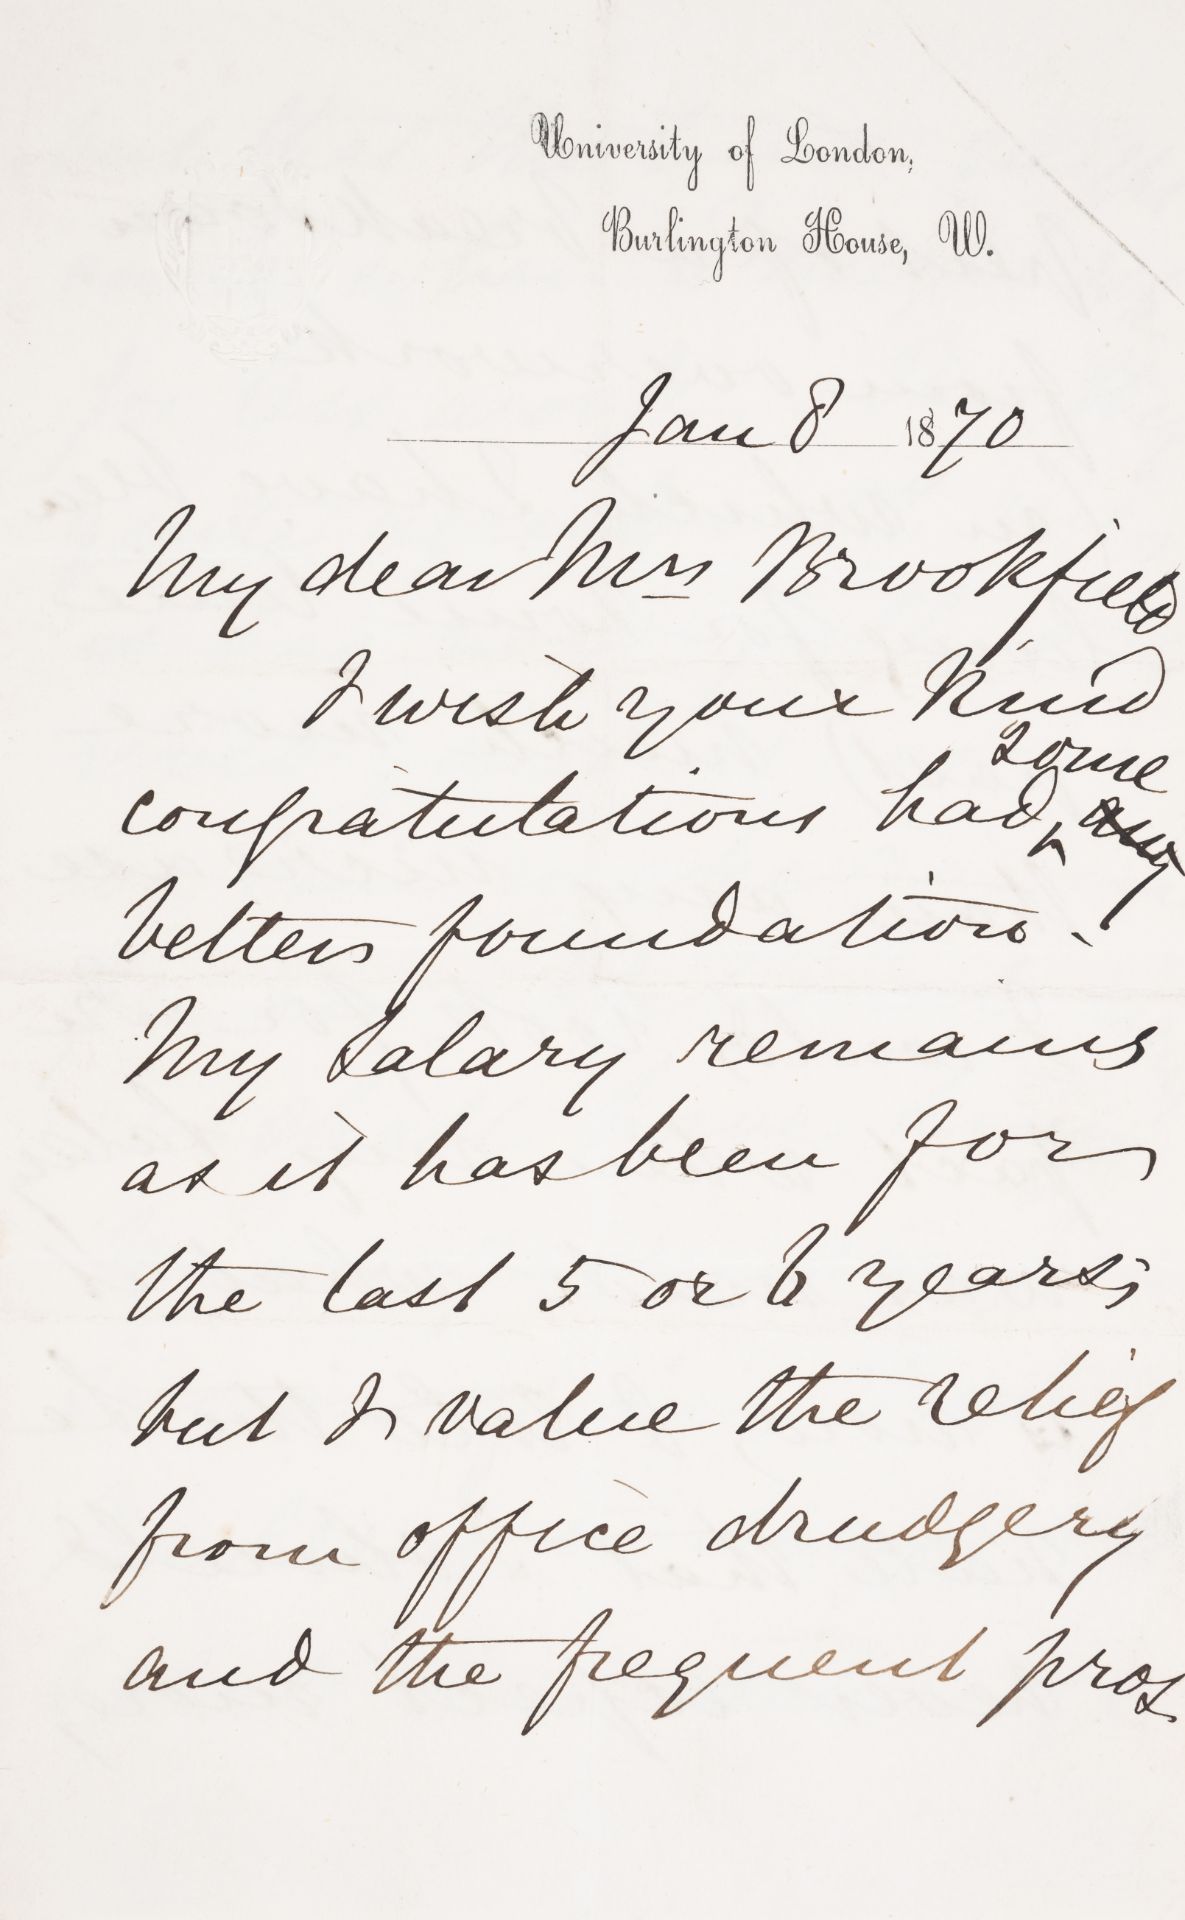 University of London,
Burlington House, W.
Jan 8 1870
My dear Mrs Brookfield
I wish your kind
some
congratulations had ^ any
better foundation.
My salary remains
as it has been for
the last 5 or 6 years;
but I value the relief
from office drudgery
and the frequent pros